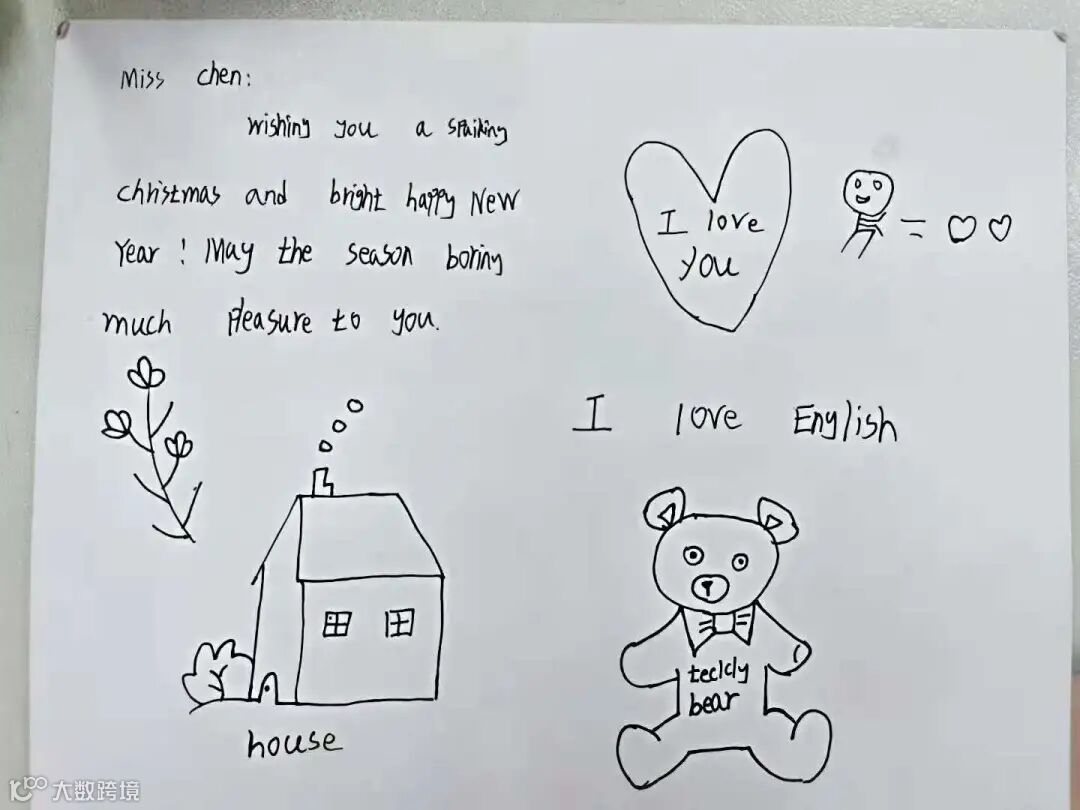 Miss chen:
wishing you a spaiking
christmas and bright happy New
Year! May the season boring
much pleasure to you.
I love
you
I love English
teddy
bear
house
大数跨境